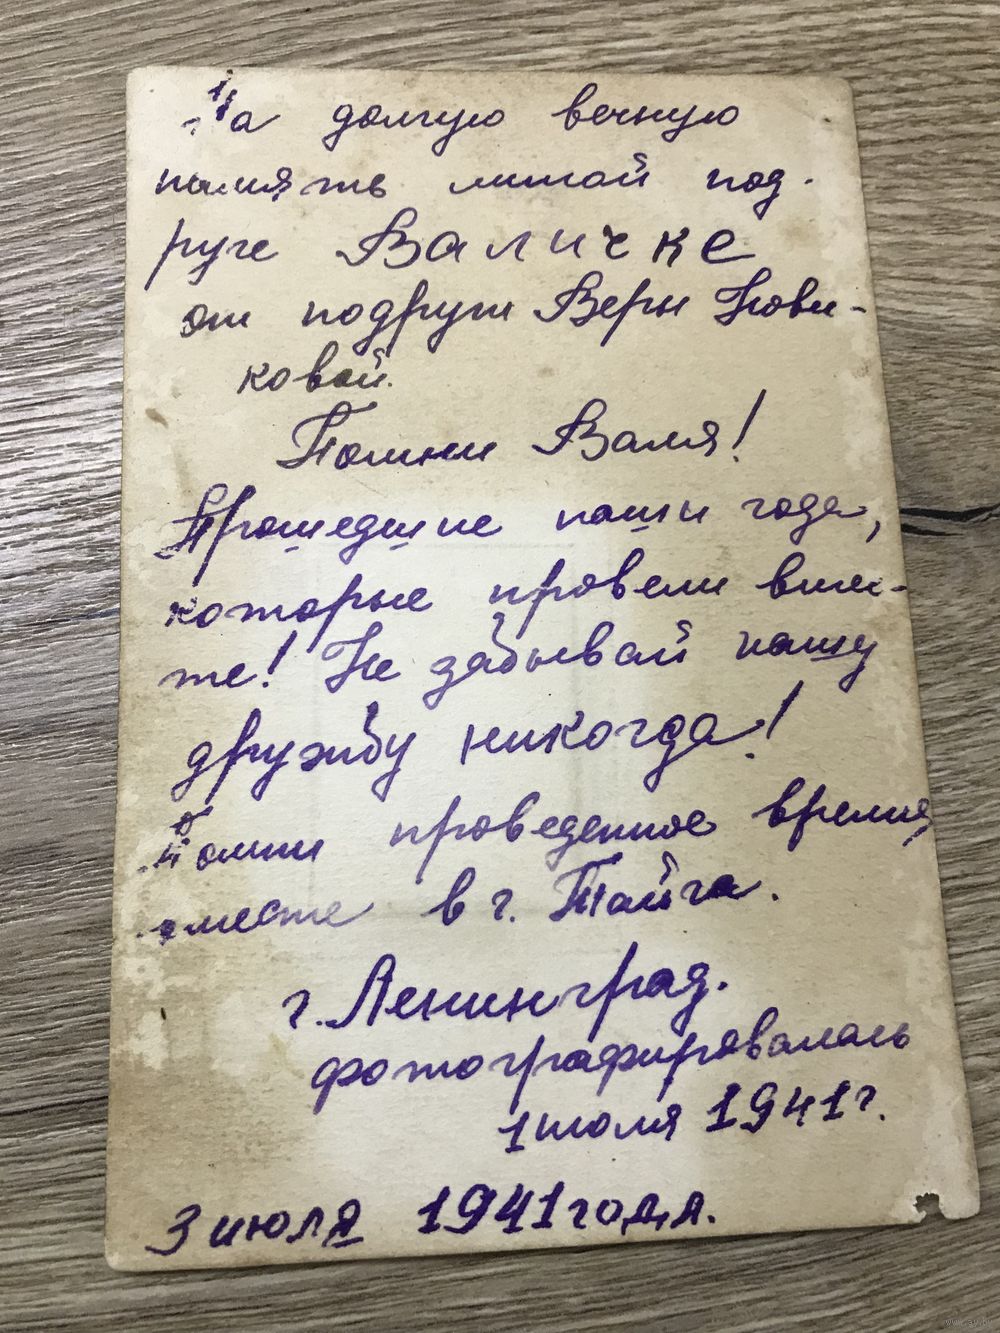 На долгую вечную
память милой под-
руге Валичке
от подруги Веры Нови-
ковой.
Помни Валя!
Прошедшие наши года,
которые провели вмес-
те! Не забывай нашу
дружбу никогда!
Помни проведенное время,
вместе в г. Тайга.
г. Ленинград.
фотографировалась
1 июля 1941 г.
3 июля 1941 года.
www.ay.by